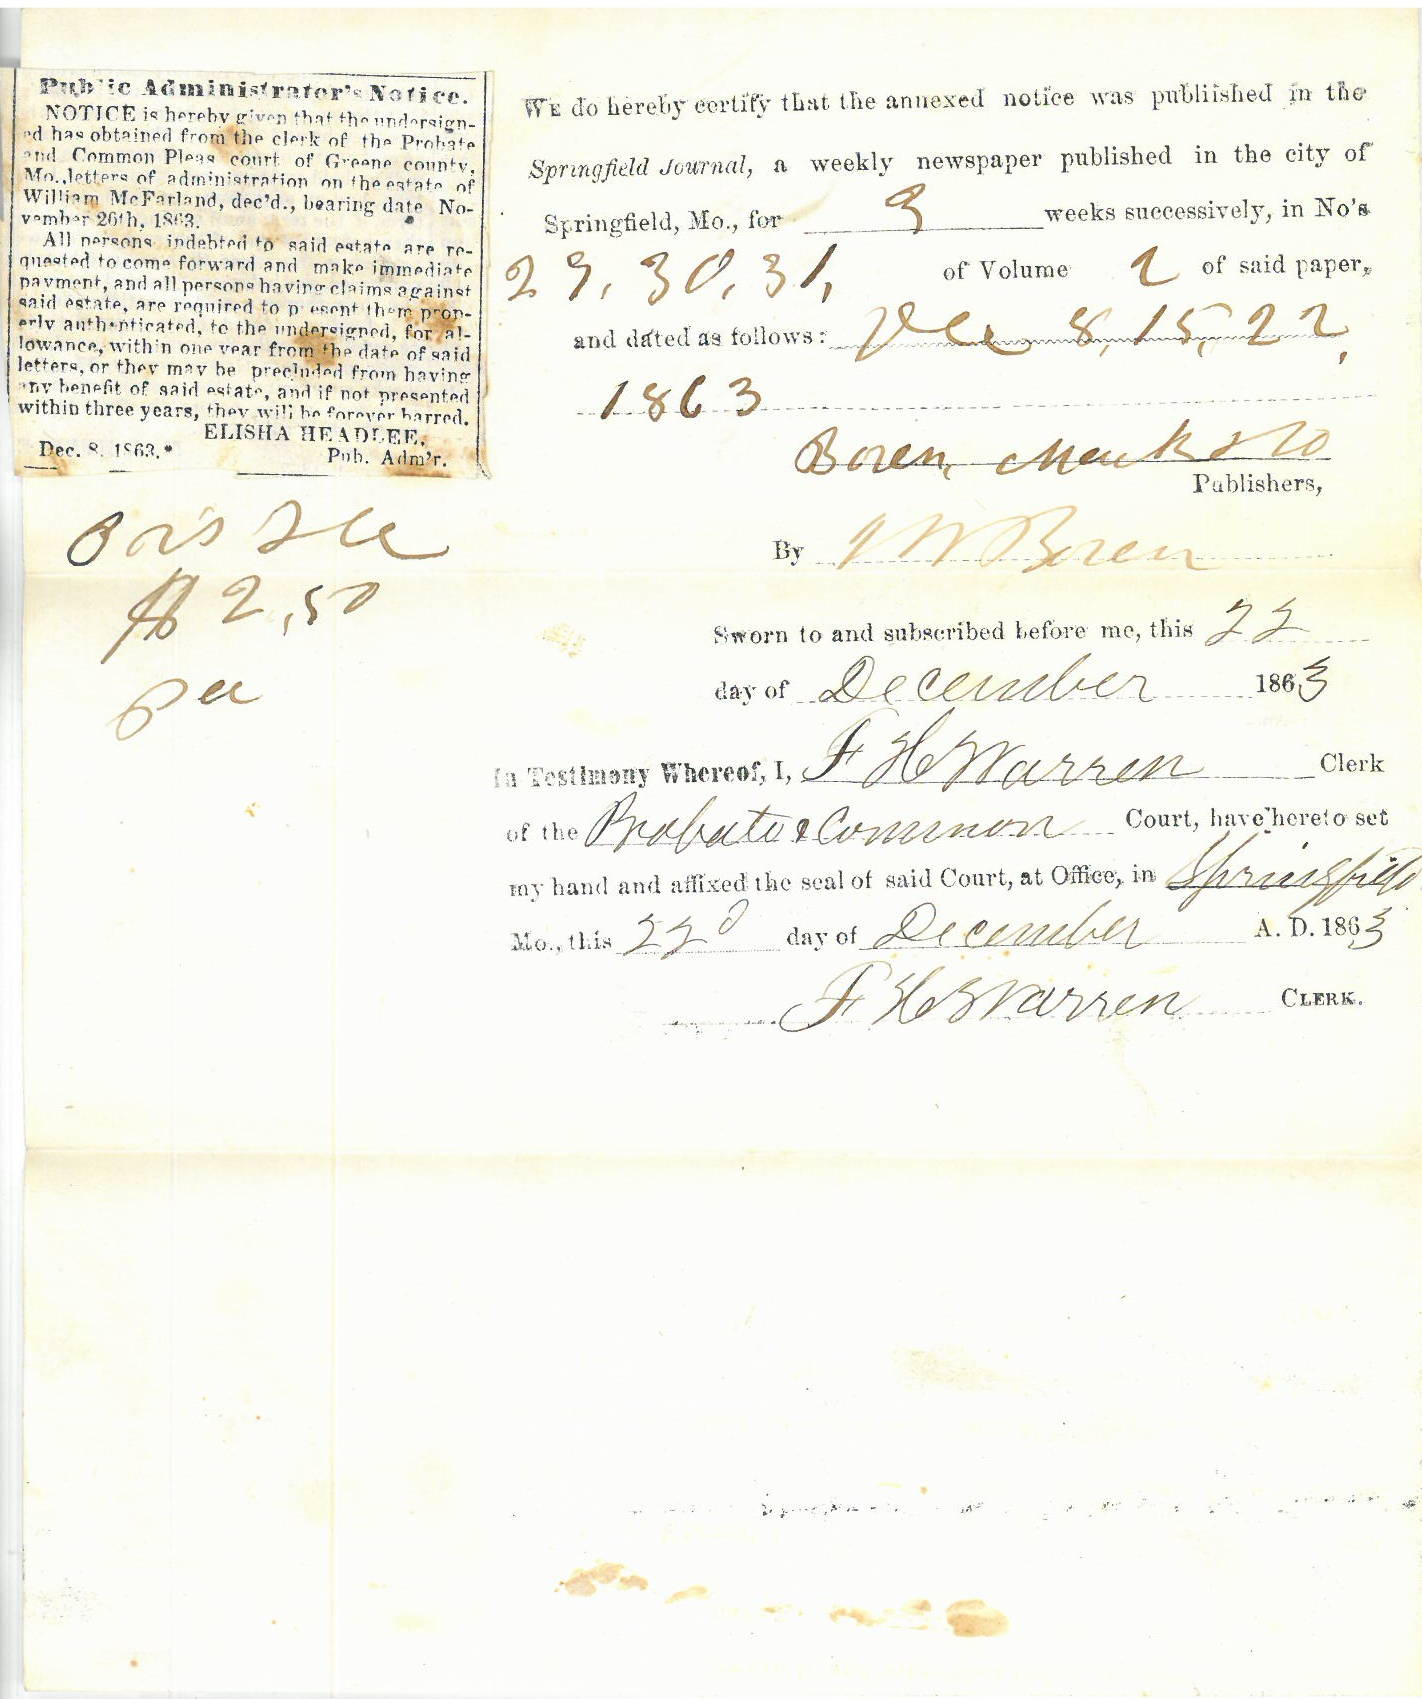 Public Administrator's Notice.
NOTICE is hereby given that the undersign-
ed has obtained from the clerk of the Probate
and Common Pleas court of Greene county,
Mo., letters of administration on the estate of
William McFarland, dec'd., bearing date No-
vember 26th, 1863.
All persons indebted to said estate are re-
quested to come forward and make immediate
payment, and all persons having claims against
said estate, are required to present them prop-
erly authenticated, to the undersigned, for al-
lowance, within one year from the date of said
letters, or they may be precluded from having
any benefit of said estate, and if not presented
within three years, they will be forever barred.
ELISHA HEADLEE,
Dec. 8, 1863.* Pub. Adm'r.
$2,50
WE do hereby certify that the annexed notice was publiished in the
Springfield Journal, a weekly newspaper published in the city of
Springfield, Mo., for 3 weeks successively, in No's
29, 30, 31, of Volume 2 of said paper,
and dated as follows: Dec 8, 15, 22,
1863
Boren,
Publishers,
By Boren
Sworn to and subscribed before me, this 22
day of December 1863
In Testimony Whereof, I, F H Warren Clerk
of the Probate & Common Court, have hereto set
my hand and affixed the seal of said Court, at Office, in Springfield
Mo., this 22d day of December A. D. 1863
F H Warren CLERK.